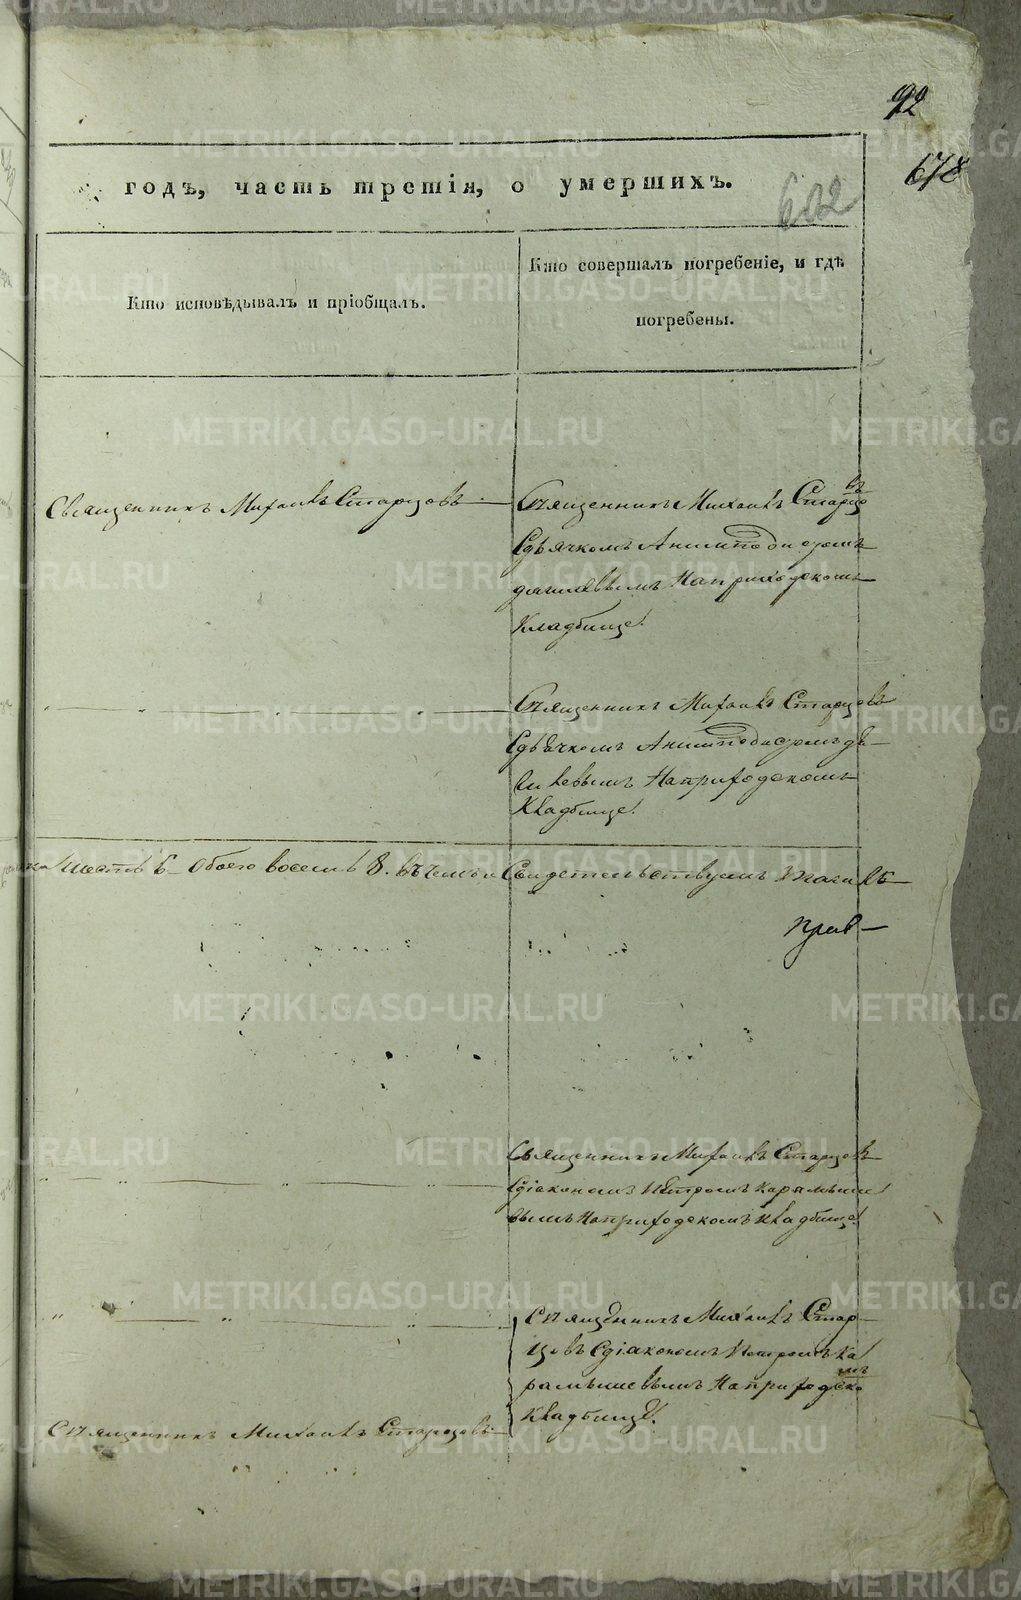 92
678
602
годъ, часть третія, о умершихъ.
Кто исповѣдывалъ и пріобщалъ.
Кто совершалъ погребеніе, и гдѣ
погребены.
Священникъ Михаилъ Старцовъ
Священникъ Михаилъ Старцовъ
Сдьячкомъ Антиподистомъ
Наприходскомъ
Кладбище.
Священникъ Михаилъ Старцовъ
Сдьячкомъ Антиподистомъ
Наприходскомъ
Кладбище.
шесть 6 обоего восемь 8. вчемъ и Свидетельствуемъ
Священникъ Михаилъ Старцовъ
Сдіакономъ Петромъ Карамыше
вымъ Наприходскомъ Кладбище.
Священникъ Михаилъ Стар
цовъ Сдіакономъ Петромъ Ка
рамышевымъ Наприходскомъ
Кладбище.
Священникъ Михаилъ Старцовъ
METRIKI.GASO-URAL.RU